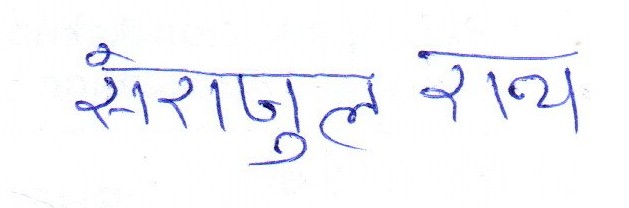 संराजुल राय